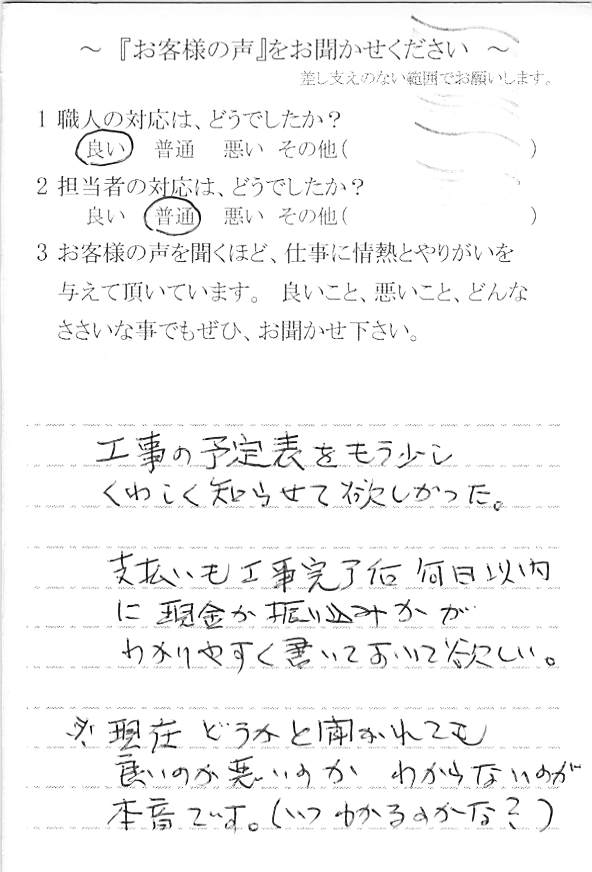 ～ 『お客様の声』をお聞かせください ～
差し支えのない範囲でお願いします。
1 職人の対応は、どうでしたか？
良い 普通 悪い その他( )
2 担当者の対応は、どうでしたか？
良い 普通 悪い その他( )
3 お客様の声を聞くほど、仕事に情熱とやりがいを
与えて頂いています。 良いこと、悪いこと、どんな
ささいな事でもぜひ、お聞かせ下さい。
工事の予定表をもう少し
くわしく知らせて欲しかった。
支払いも工事完了后 何日以内
に 現金か振り込みかが
わかりやすく書いておいて欲しい。
※ 現在 どうかと聞かれても
良いのか悪いのか わからないのが
本音です。(いつわかるのかな？)